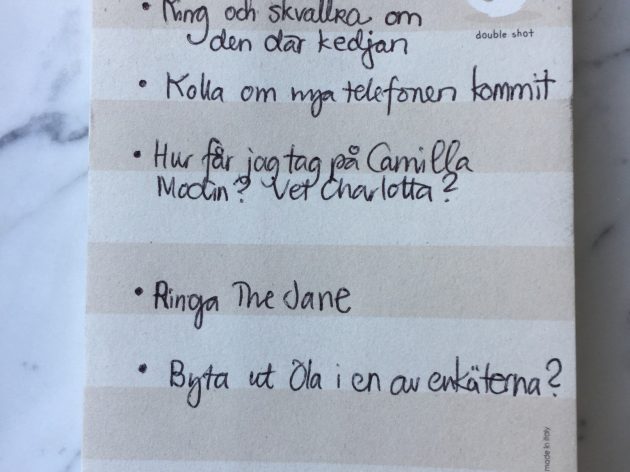 • Ring och skvallra om
den där kedjan
double shot
• Kolla om nya telefonen kommit
• Hur får jag tag på Camilla
Modin? Vet Charlotta?
• Ringa The Jane
• Byta ut Ola i en av enkäterna?
made in italy